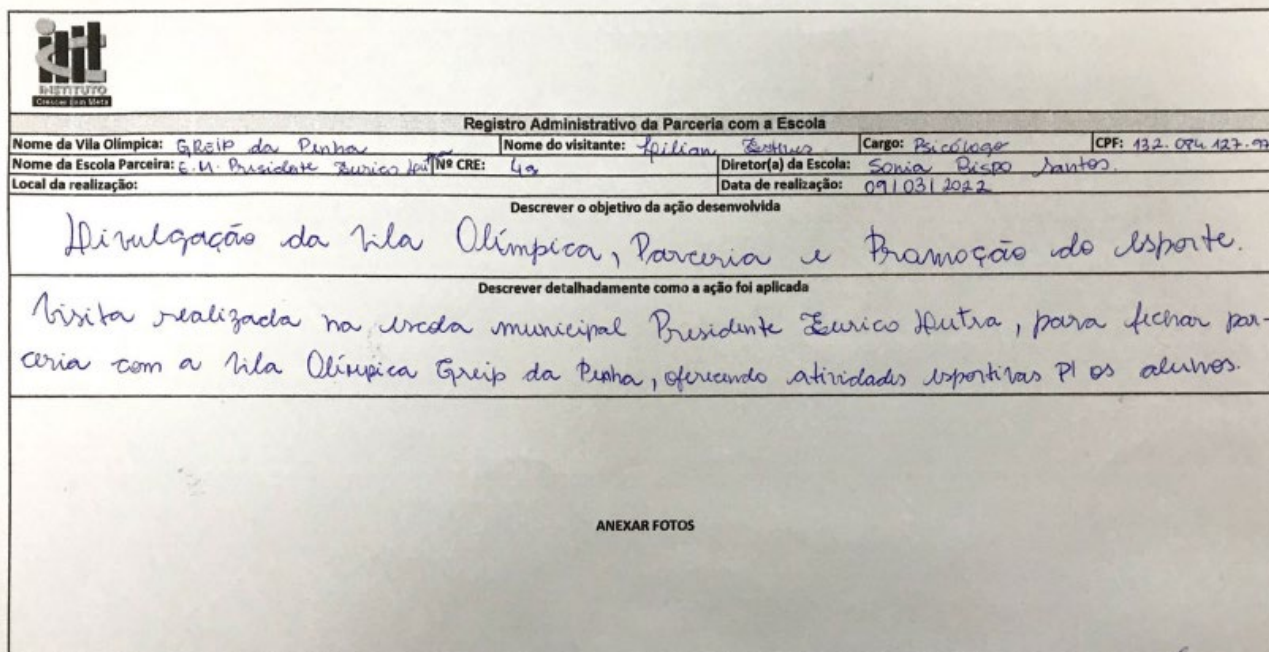 INSTITUTO
Crescer com Meta
Registro Administrativo da Parceria com a Escola
Nome da Vila Olímpica: GREIP da Penha Nome do visitante: Lilian Esthus Cargo: Psicólogo CPF: 132.084.127.97
Nome da Escola Parceira: E.M. Presidente Eurico Nº CRE: 4ª Diretor(a) da Escola: Sonia Bispo Santos.
Local da realização: Data de realização: 09/03/2022
Descrever o objetivo da ação desenvolvida
Divulgação da Vila Olímpica, Parceria e Promoção do Esporte.
Descrever detalhadamente como a ação foi aplicada
Visita realizada na escola municipal Presidente Eurico Dutra, para fechar par-
ceria com a Vila Olímpica Greip da Penha, oferecendo atividades esportivas P/ os alunos.
ANEXAR FOTOS